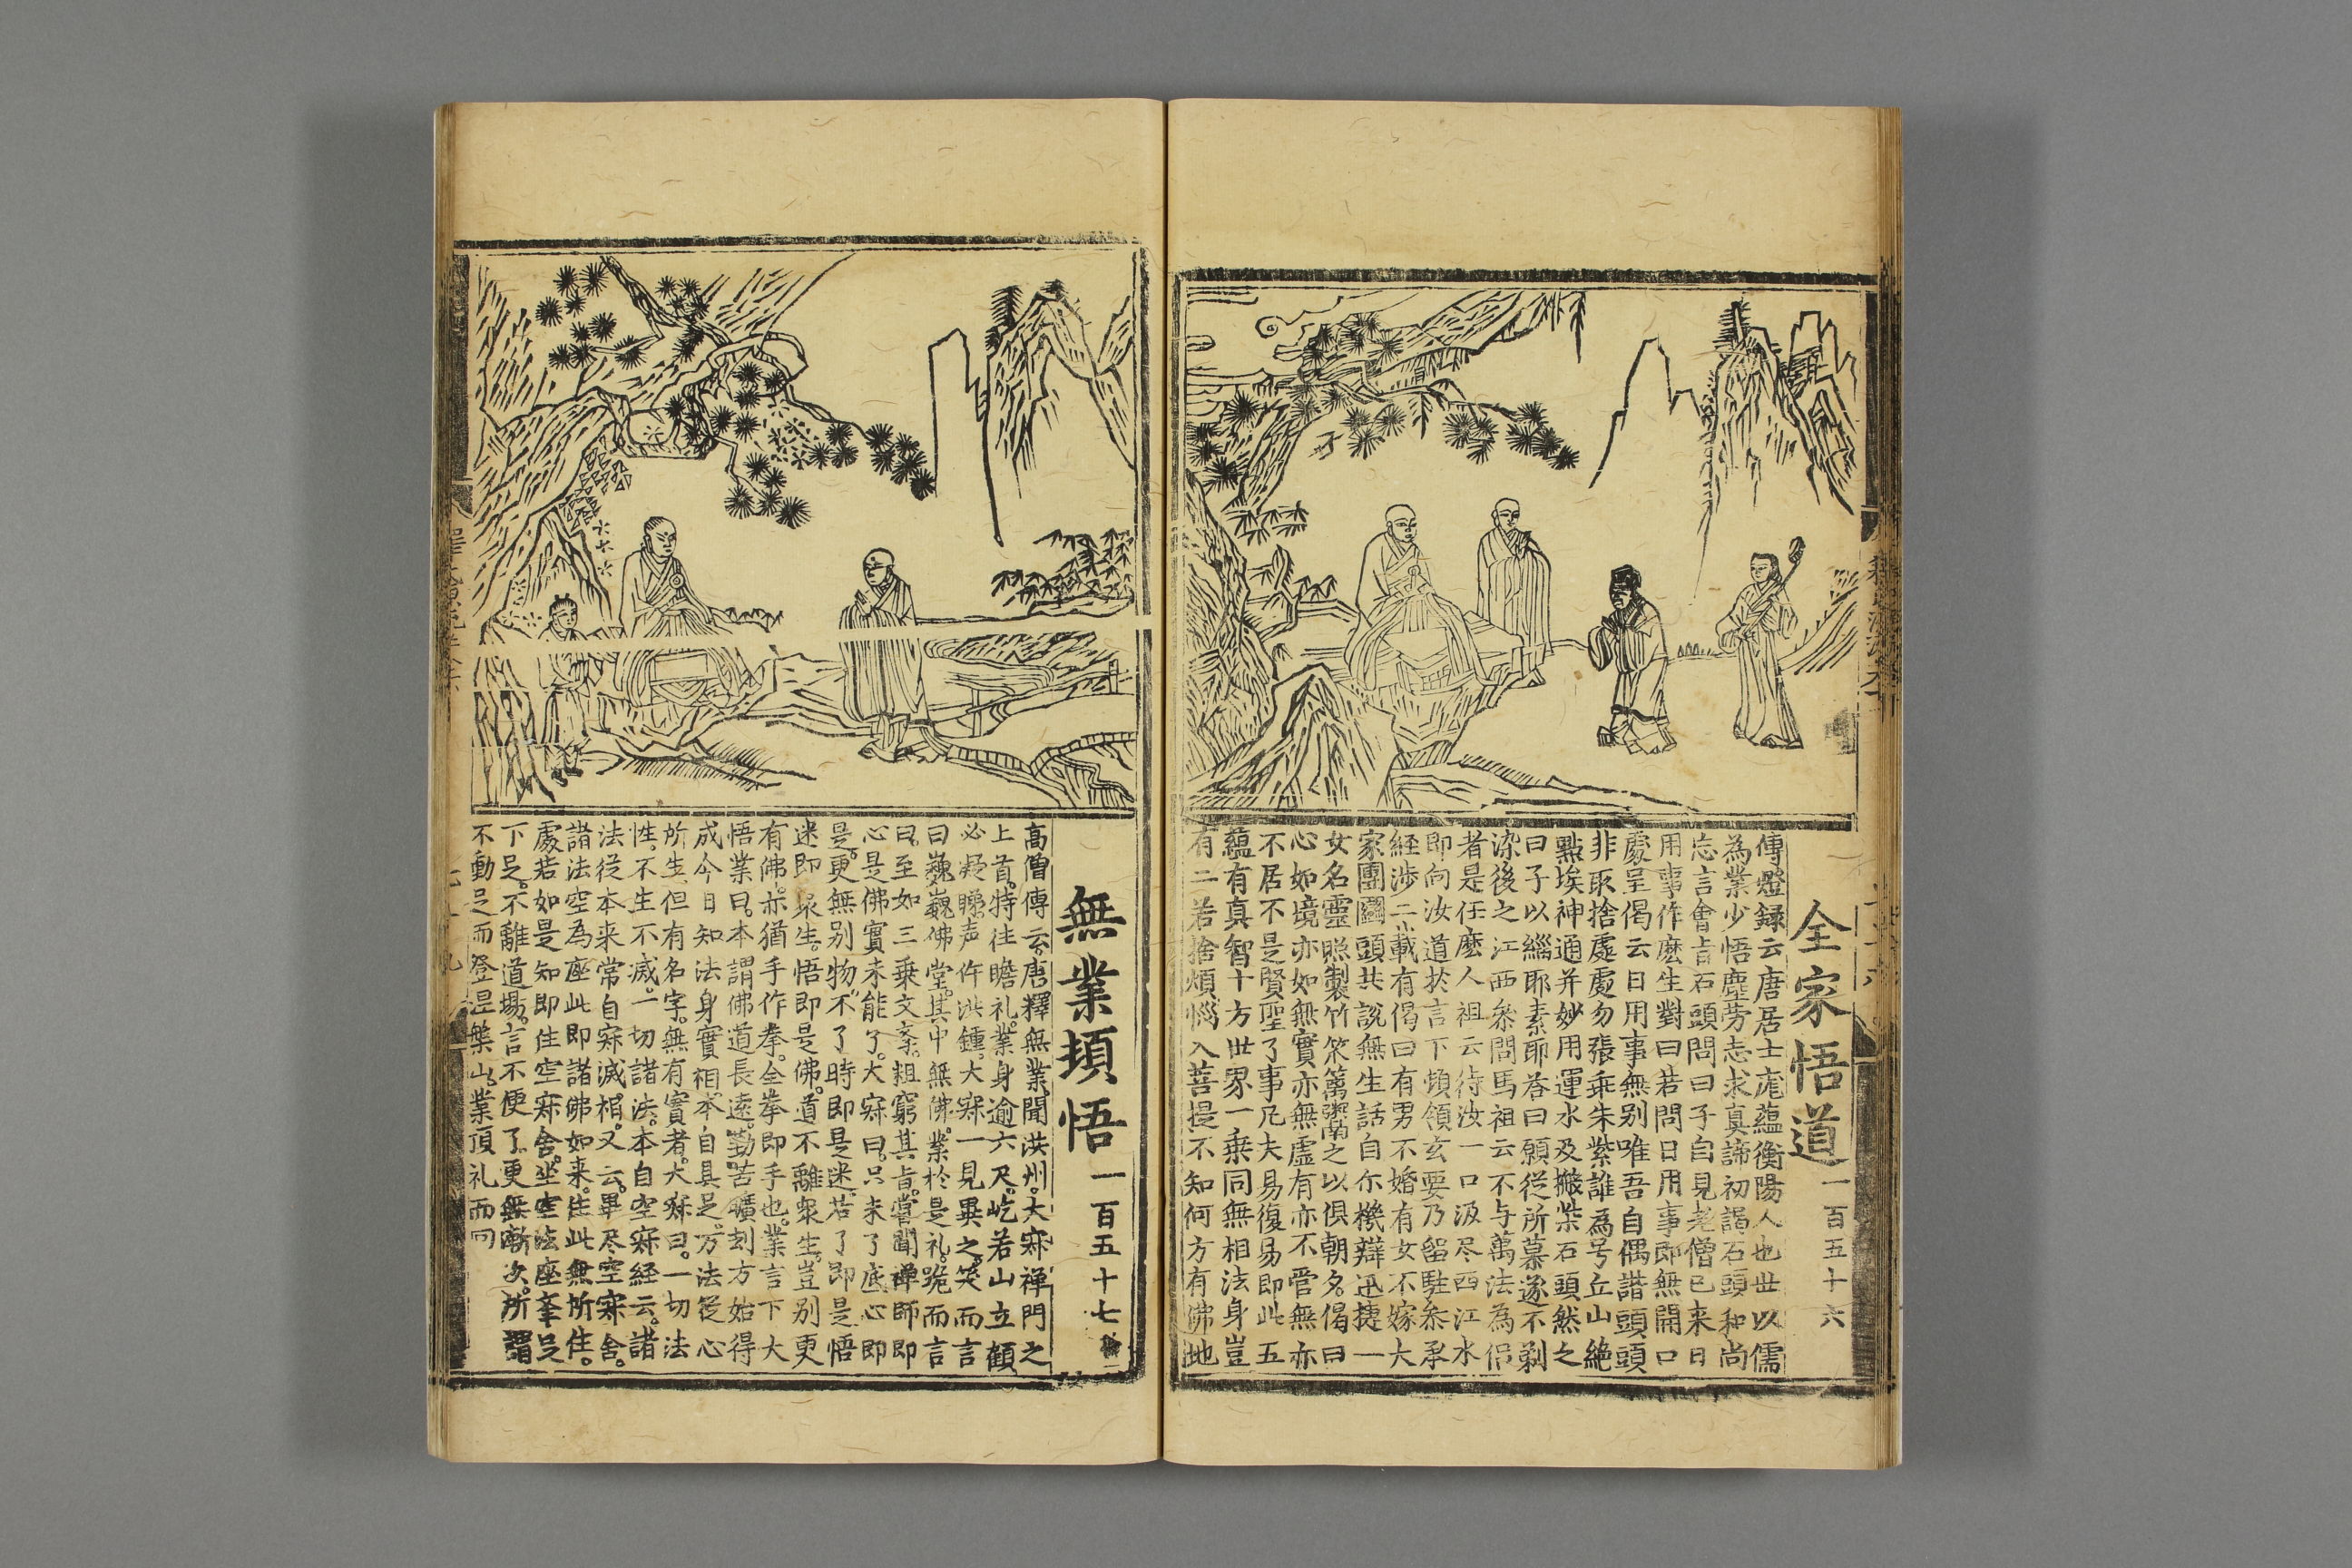 全家悟道一百五十六
傳燈録云唐居士龐蘊衡陽人也世以儒
為業少悟塵劳志求真諦初謁石頭和尚
忘言會旨石頭問曰子自見老僧已来日
用事作麽生對曰若問日用事即無開口
處呈偈云日用事無别唯吾自偶諧頭頭
非取捨處處勿張乖朱紫誰為号丘山絶
㸃埃神通并妙用運水及搬柴石頭然之
曰子以緇耶素耶荅曰願從所慕遂不剃
染後之江西叅問馬祖云不与萬法為侣
者是任麽人祖云待汝一口汲尽西江水
即向汝道扵言下頓領玄要乃留駐叅承
経涉二載有偈曰有男不婚有女不嫁大
家團圞頭共說無生話自尓機辯迅捷一
女名靈照製竹笊篱鬻之以俱朝夕偈曰
心如境亦如無實亦無虚有亦不管無亦
不居不是賢聖了事凡夫易復易即此五
蘊有真智十方世界一乗同無相法身豈
有二若捨煩惱入菩提不知何方有佛地
無業頓悟一百五十七
高僧傳云唐釋無業聞洪州大寂禅門之
上首特往瞻礼業身逾六尺屹若山立顧
必凝睇声仵洪鍾大寂一見異之笑而言
曰巍巍佛堂其中無佛業於是礼跪而言
曰至如三乗文亲粗窮其旨嘗聞禅師即
心是佛實未能了大寂曰只未了底心即
是更無别物不了時即是迷若了即是悟
迷即衆生悟即是佛道不離衆生豈别更
有佛亦猶手作拳全拳即手也業言下大
悟業曰本謂佛道長遠勤苦曠刧方始得
成今日知法身實相本自具足万法從心
所生但有名字無有實者大寂曰一切法
性不生不滅一切諸法本自空寂経云諸
法從本来常自寂滅相又云畢尽空寂舍
諸法空為座此即諸佛如来住此無所住
處若如是知即住空寂舍坐空法座举足
下足不離道場言不便了更無漸次所謂
不動足而登涅槃山業頂礼而囬